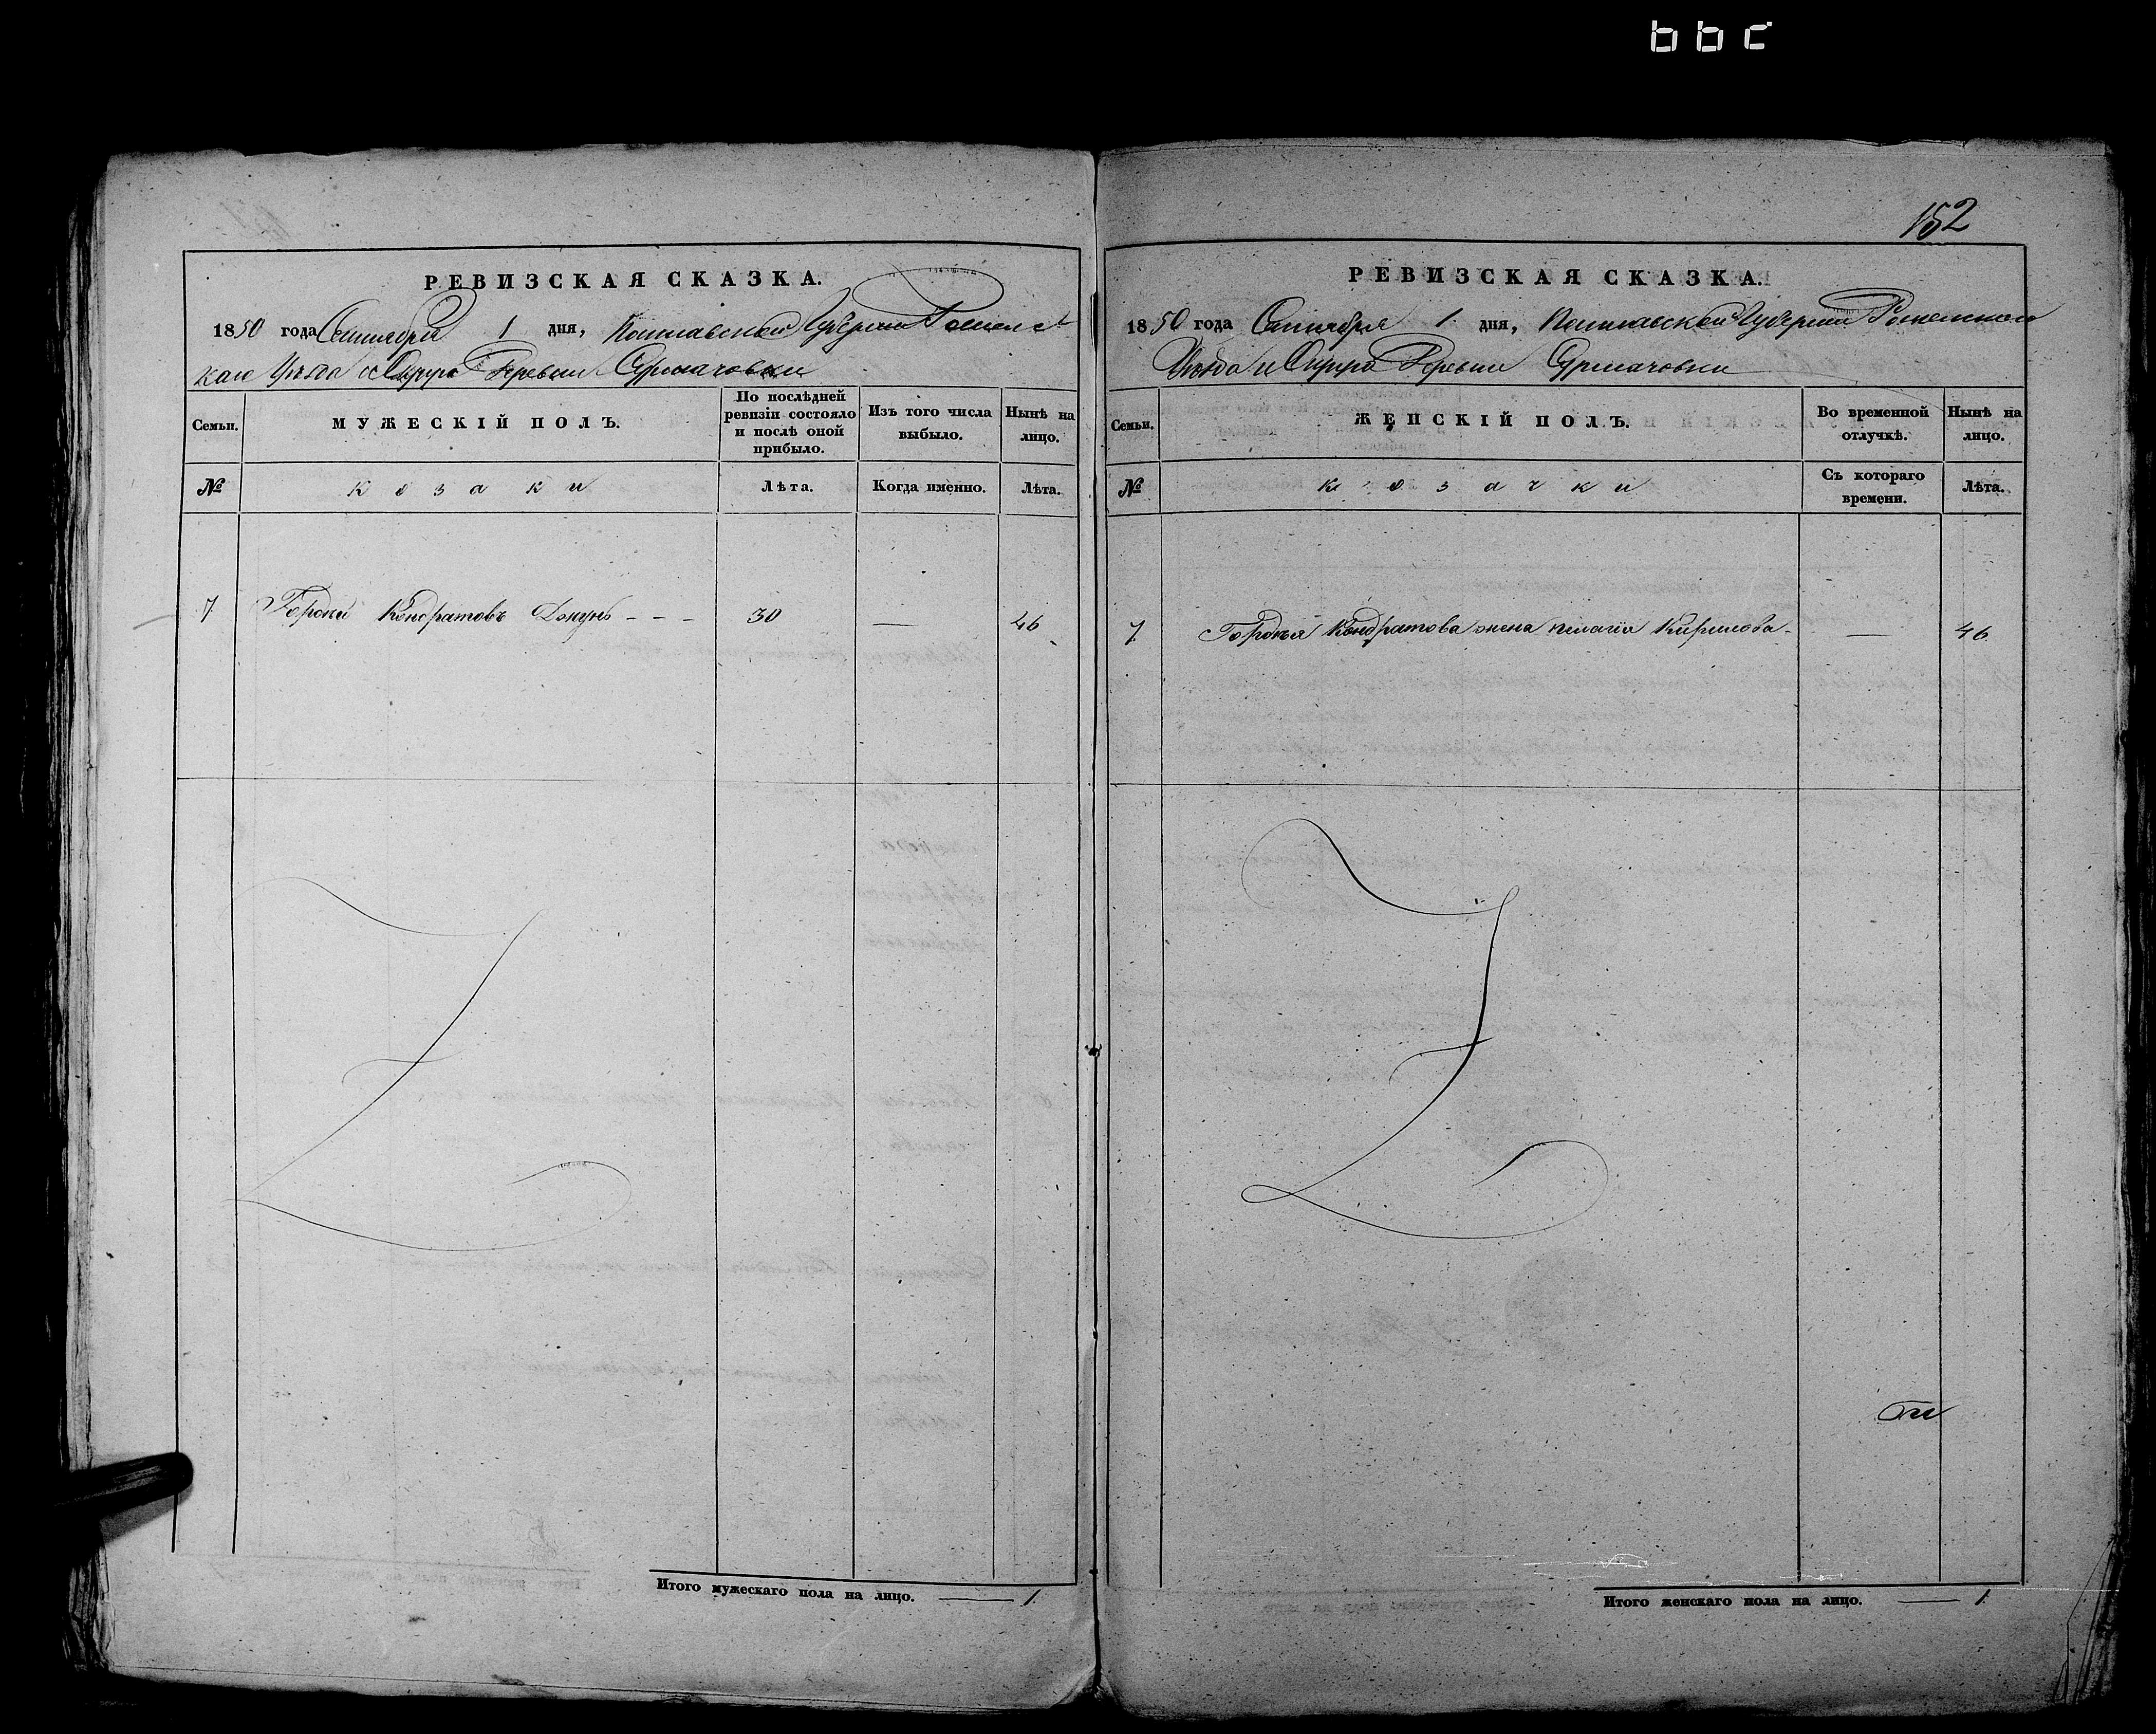 ббс
152
РЕВИЗСКАЯ СКАЗКА.
1850 года Сентября 1 дня, Полтавской Губернии Роменс
каго Уѣзда и Округа Деревни Сурмачовки
Семьи. МУЖЕСКІЙ ПОЛЪ. По послѣдней ревизіи состояло и послѣ оной прибыло. Изъ того числа выбыло. Нынѣ на лицо.
№ козаки Лѣта. Когда именно. Лѣта.
7 Гордѣй Кондратовъ 30 — 46
Итого мужескаго пола на лицо. — 1
РЕВИЗСКАЯ СКАЗКА.
1850 года Сентября 1 дня, Полтавской Губерніи Роменского
Уѣзда и Округа Деревни Сурмачовки
Семьи. ЖЕНСКІЙ ПОЛЪ. Во временной отлучкѣ. Нынѣ на лицо.
№ козачки Съ котораго времени. Лѣта.
7 Гордѣя Кондратова жена Пелагія Кирилова — 46
Итого женскаго пола на лицо. — 1